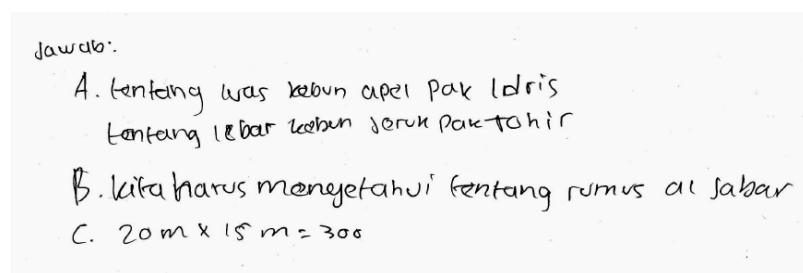 Jawab:
A. tentang luas kebun apel pak Idris
tentang lebar kebun jeruk pak tohir
B. kita harus mengetahui tentang rumus al jabar
C. 20 m x 15 m = 300